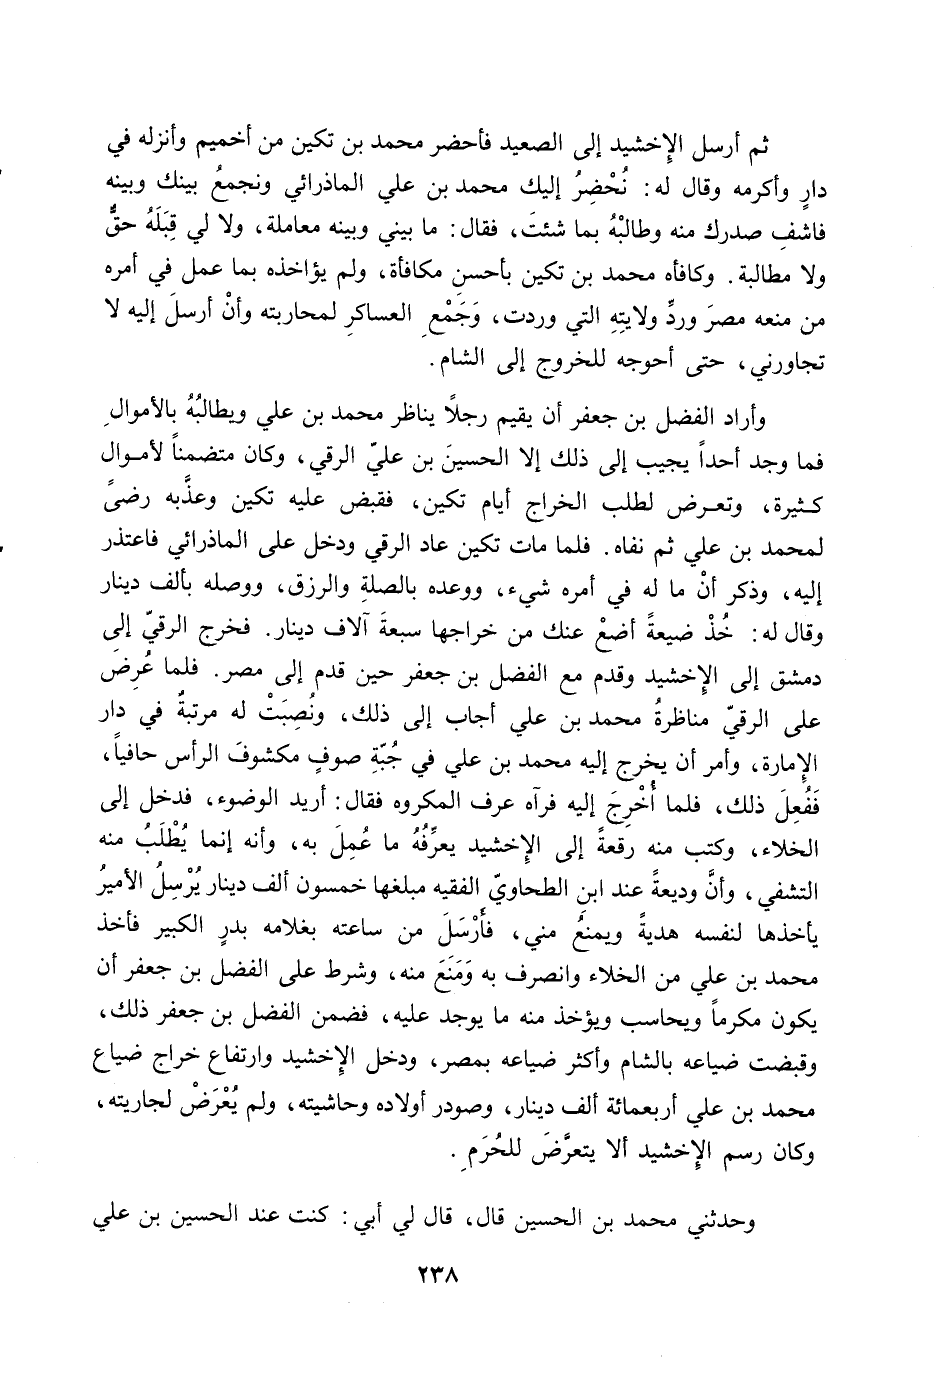 ثم أرسل الإخشيد إلى الصعيد فأحضر محمد بن تكين من أخميم وأنزله في
دارٍ وأكرمه وقال له: نُحْضِرُ إليك محمد بن علي الماذرائي ونجمعُ بينك وبينه
فاشفِ صدرك منه وطالبْهُ بما شئتَ، فقال: ما بيني وبينه معاملة، ولا لي قِبَلَهُ حقٌّ
ولا مطالبة. وكافأه محمد بن تكين بأحسن مكافأة، ولم يؤاخذه بما عمل في أمره
من منعه مصرَ وردِّ ولايتِهِ التي وردت، وَجَمْعِ العساكرِ لمحاربته وأنْ أرسلَ إليه لا
تجاورني، حتى أحوجه للخروج إلى الشام.
وأراد الفضل بن جعفر أن يقيم رجلاً يناظر محمد بن علي ويطالبُهُ بالأموالِ
فما وجد أحداً يجيب إلى ذلك إلا الحسينَ بن عليّ الرقي، وكان متضمناً لأموال
كثيرة، وتعرض لطلب الخراج أيام تكين، فقبض عليه تكين وعذَّبه رضىً
لمحمد بن علي ثم نفاه. فلما مات تكين عاد الرقي ودخل على الماذرائي فاعتذر
إليه، وذكر أنْ ما له في أمره شيء، ووعده بالصلةِ والرزق، ووصله بألف دينار
وقال له: خُذْ ضيعةً أضعْ عنك من خراجها سبعةَ آلاف دينار. فخرج الرقيّ إلى
دمشق إلى الإخشيد وقدم مع الفضل بن جعفر حين قدم إلى مصر. فلما عُرِضَ
على الرقيّ مناظرةُ محمد بن علي أجاب إلى ذلك، ونُصِبَتْ له مرتبةٌ في دار
الإمارة، وأمر أن يخرج إليه محمد بن علي في جُبّةِ صوفٍ مكشوفَ الرأس حافياً،
فَفُعِلَ ذلك، فلما أُخْرِجَ إليه فرآه عرف المكروه فقال: أريد الوضوء، فدخل إلى
الخلاء، وكتب منه رقعةً إلى الإخشيد يعرِّفُهُ ما عُمِلَ به، وأنه إنما يُطْلَبُ منه
التشفي، وأنَّ وديعةً عند ابن الطحاويّ الفقيه مبلغها خمسون ألف دينار يُرْسِلُ الأميرُ
يأخذها لنفسه هديةً ويمنعُ مني، فأَرْسَلَ من ساعته بغلامه بدرٍ الكبير فأخذ
محمد بن علي من الخلاء وانصرف به وَمَنَعَ منه، وشرط على الفضل بن جعفر أن
يكون مكرماً ويحاسب ويؤخذ منه ما يوجد عليه، فضمن الفضل بن جعفر ذلك،
وقبضت ضياعه بالشام وأكثر ضياعه بمصر، ودخل الإخشيد وارتفاع خراج ضياع
محمد بن علي أربعمائة ألف دينار، وصودر أولاده وحاشيته، ولم يُعْرَضْ لجاريته،
وكان رسم الإخشيد ألا يتعرَّضَ للحُرَمِ.
وحدثني محمد بن الحسين قال، قال لي أبي: كنت عند الحسين بن علي
٢٣٨